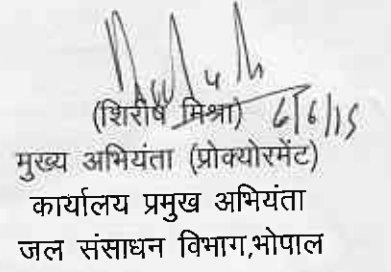 (शिरीष मिश्रा) 6/6/15
मुख्य अभियंता (प्रोक्योरमेंट)
कार्यालय प्रमुख अभियंता
जल संसाधन विभाग,भोपाल